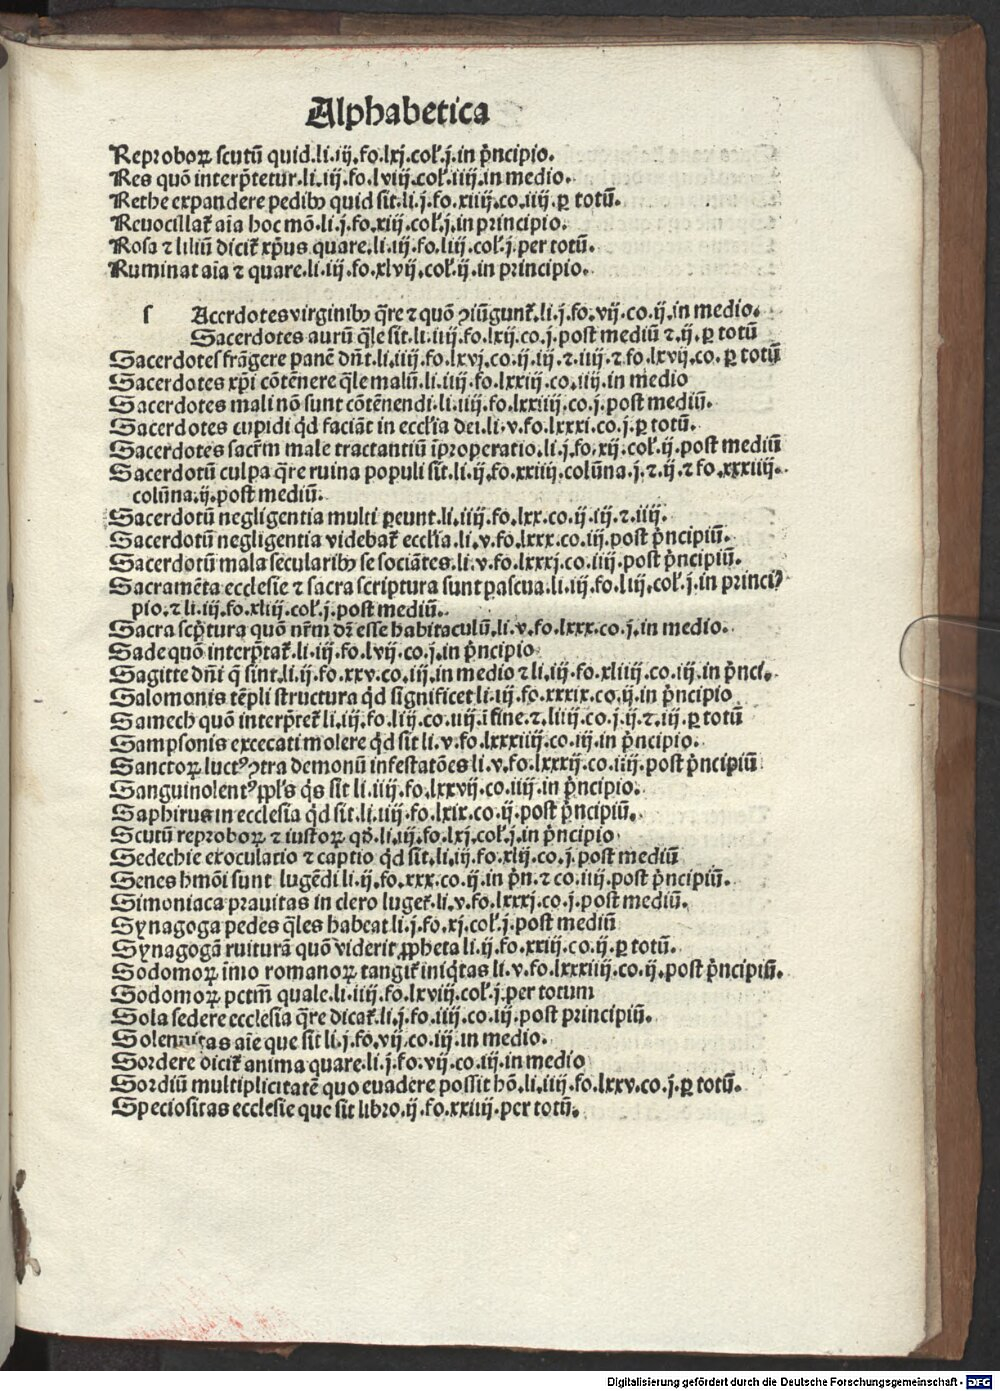 Alphabetica
Reproboꝝ scutū quid.li.iij.fo.lxj.col̕.j.in pͥncipio.
Res quō interp̄tetur.li.iij.fo.lviij.col̕.iiij.in medio.
Rethe expandere pedibꝰ quid sit.li.j.fo.xiiij.co.iiij.ꝑ totū.
Reuocillat̕ aīa hoc mō.li.j.fo.xiij.col̕.j.in principio.
Rosa ⁊ liliū dicit̕ xp̄us quare.li.iij.fo.liij.col̕.j.per totū.
Ruminat aīa ⁊ quare.li.iij.fo.xlvij.col̕.ij.in principio.
s Acerdotes virginibꝰ q̄re ⁊ quō ↄiūgunt̕.li.j.fo.vij.co.ij.in medio.
Sacerdotes aurū q̄le sit.li.iiij.fo.lxij.co.j.post mediū ⁊.ij.ꝑ totū
Sacerdotes frāgere panē dn̄t.li.iiij.fo.lxvj.co.ij.iij.⁊.iiij ⁊ fo.lxvij.co.ꝑ totū
Sacerdotes xp̄i cōtēnere q̄le malū.li.iiij.fo.lxxiij.co.iiij.in medio
Sacerdotes mali nō sunt cōtēnendi.li.iiij.fo.lxxiiij.co.j.post mediū.
Sacerdotes cupidi qͥd faciāt in eccl̕ia dei.li.v.fo.lxxxi.co.j.ꝑ totū.
Sacerdotes sacr̄m male tractantiū īproperatio.li.j.fo.xij.col̕.ij.post mediū
Sacerdotū culpa q̄re ruina populi sit.li.ij.fo.xxiiij.colūna.j.⁊.ij.⁊ fo.xxxiiij.
colūna.ij.post mediū.
Sacerdotū negligentia multi ꝑeunt.li.iiij.fo.lxx.co.ij.iij.⁊.iiij.
Sacerdotū negligentia videbat̕ eccl̕ia.li.v.fo.lxxx.co.iij.post pͥncipiū.
Sacerdotū mala secularibꝰ se sociātes.li.v.fo.lxxxj.co.iiij.post pͥncipiū.
Sacramēta ecclesie ⁊ sacra scriptura sunt pascua.li.iij.fo.liij.col̕.j.in princi⸗
pio.⁊ li.iij.fo.xliij.col̕.j.post mediū.
Sacra scͥptura quō nr̄m dr̄ esse habitaculū.li.v.fo.lxxx.co.j.in medio.
Sade quō interp̄tat̕.li.iij.fo.lvij.co.j.in pͥncipio
Sagitte dn̄i q̄ sint.li.ij.fo.xxv.co.iij.in medio ⁊ li.iij.fo.xliiij.co.iij.in pͥnci.
Salomonis tēpli structura qͥd significet li.iij.fo.xxxix.co.ij.in pͥncipio
Samech quō interp̄tet̕ li.iij.fo.liij.co.iiij.ī fine.⁊.liiij.co.j.ij.⁊.iij.ꝑ totū
Sampsonis excecati molere qͥd sit li.v.fo.lxxxiiij.co.iij.in pͥncipio.
Sanctoꝝ luctꝰ ↄtra demonū infestatōes li.v.fo.lxxxij.co.iiij.post pͥncipiū
Sanguinolentꝰ ꝓpl̕s qͥs sit li.iiij.fo.lxxvij.co.iiij.in pͥncipio.
Saphirus in ecclesia qͥd sit.li.iiij.fo.lxix.co.ij.post pͥncipiū.
Scutū reproboꝝ ⁊ iustoꝝ qͥd.li.iij.fo.lxj.col̕.j.in pͥncipio
Sedechie exoculatio ⁊ captio qͥd sit.li.iij.fo.xlij.co.j.post mediū
Senes hmōi sunt lugēdi li.ij.fo.xxx.co.ij.in pͥn.⁊ co.iiij.post pͥncipiū.
Simoniaca prauitas in clero luget̕.li.v.fo.lxxxj.co.j.post mediū.
Synagoga pedes q̄les habeat li.j.fo.xj.col̕.j.post mediū
Synagogā ruiturā quō viderit ꝓpheta li.ij.fo.xxiij.co.ij.ꝑ totū.
Sodomoꝝ īmo romanoꝝ tangit̕ iniqͥtas li.v.fo.lxxxiiij.co.ij.post pͥncipiū.
Sodomoꝝ pctm̄ quale.li.iiij.fo.lxviij.col̕.j.per totum
Sola sedere ecclesia q̄re dicat̕.li.j.fo.iiij.co.iij.post principiū.
Solennitas aīe que sit li.j.fo.vij.co.iij.in medio.
Sordere dicit̕ anima quare.li.j.fo.vij.co.iij.in medio
Sordiū multiplicitatē quo euadere possit hō.li.iiij.fo.lxxv.co.j.ꝑ totū.
Speciositas ecclesie que sit libro.ij.fo.xxiiij.per totū.
Digitalisierung gefördert durch die Deutsche Forschungsgemeinschaft - DFG